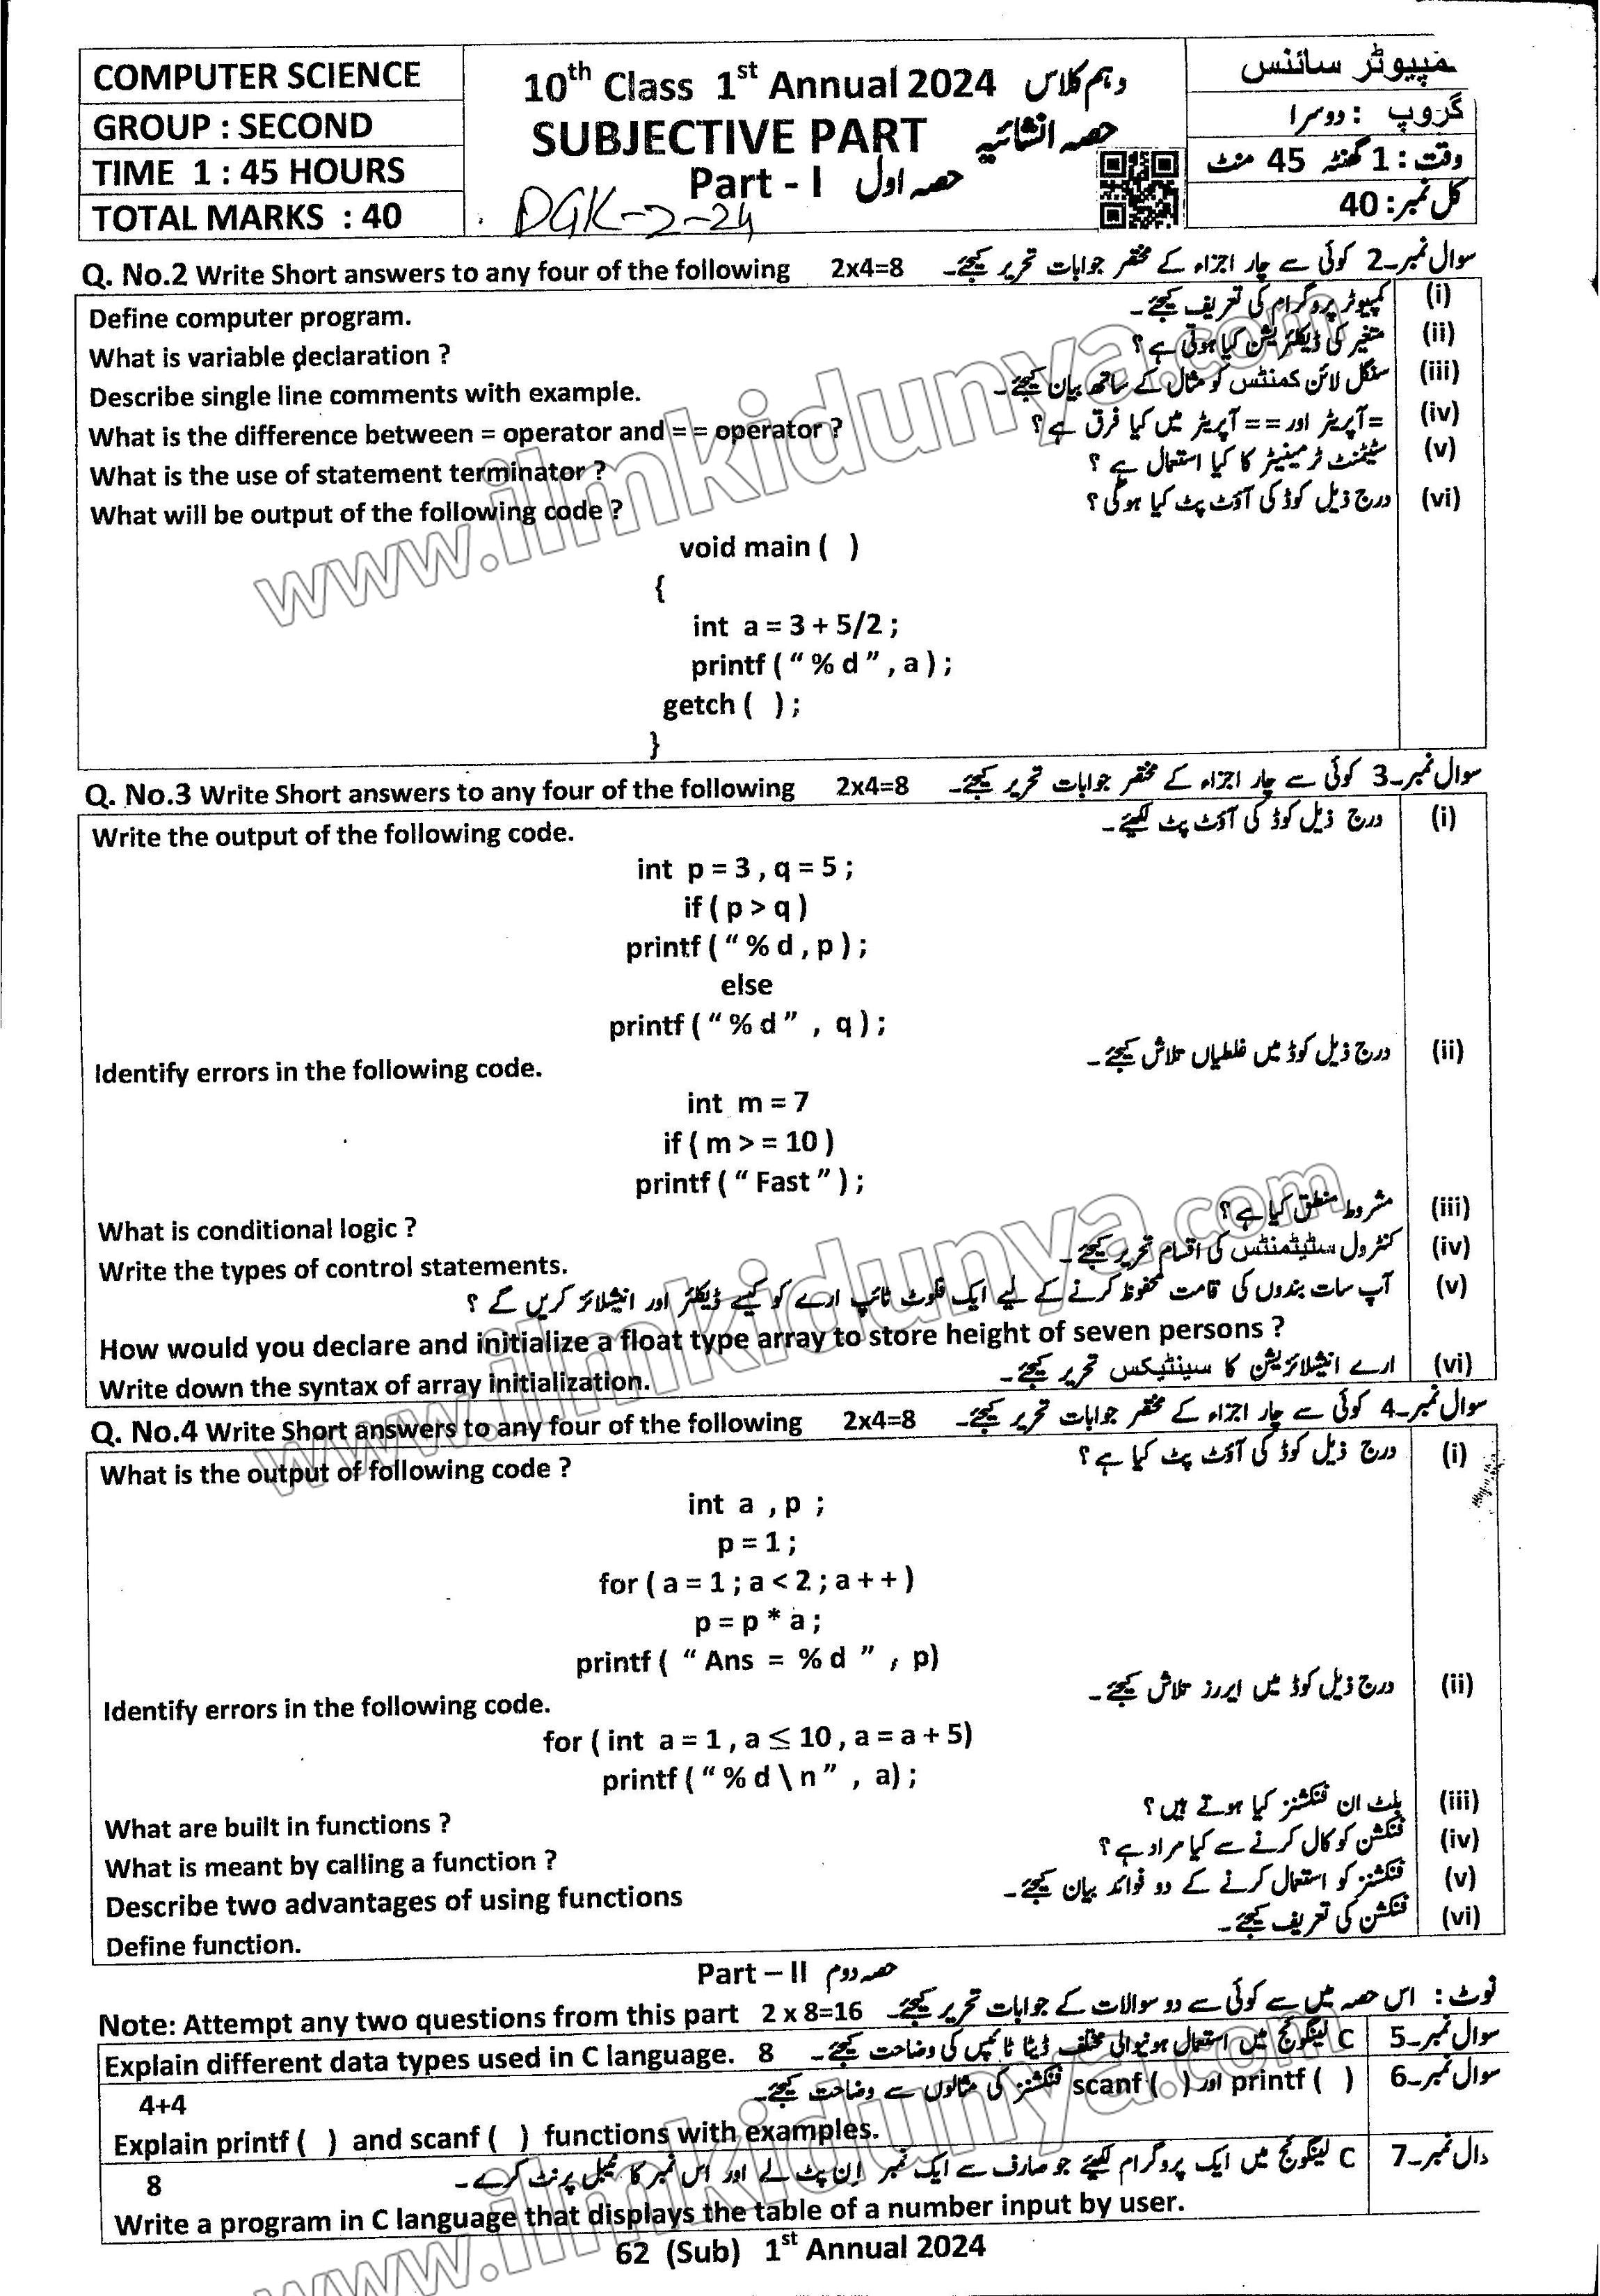 COMPUTER SCIENCE
GROUP : SECOND
TIME 1 : 45 HOURS
TOTAL MARKS : 40
10th Class 1st Annual 2024 دہم کلاس
SUBJECTIVE PART حصہ انشائیہ
Part - I حصہ اول
DGK-2-24
کمپیوٹر سائنس
گروپ : دوسرا
وقت : 1 گھنٹہ 45 منٹ
کل نمبر : 40
Q. No.2 Write Short answers to any four of the following 2x4=8 سوال نمبر۔2 کوئی سے چار اجزاء کے مختصر جوابات تحریر کیجئے۔
(i) کمپیوٹر پروگرام کی تعریف کیجئے۔
Define computer program.
(ii) متغیر کی ڈیکلریشن کیا ہوتی ہے ؟
What is variable declaration ?
(iii) سنگل لائن کمنٹس کو مثال کے ساتھ بیان کیجئے۔
Describe single line comments with example.
(iv) = آپریٹر اور == آپریٹر میں کیا فرق ہے ؟
What is the difference between = operator and = = operator ?
(v) سٹیٹمنٹ ٹرمینیٹر کا کیا استعمال ہے ؟
What is the use of statement terminator ?
(vi) درج ذیل کوڈ کی آؤٹ پٹ کیا ہوگی ؟
What will be output of the following code ?
void main ( )
{
int a = 3 + 5/2 ;
printf ( “ % d ” , a ) ;
getch ( ) ;
}
Q. No.3 Write Short answers to any four of the following 2x4=8 سوال نمبر۔3 کوئی سے چار اجزاء کے مختصر جوابات تحریر کیجئے۔
(i) درج ذیل کوڈ کی آؤٹ پٹ لکھیئے۔
Write the output of the following code.
int p = 3 , q = 5 ;
if ( p > q )
printf ( “ % d , p ) ;
else
printf ( “ % d ” , q ) ;
(ii) درج ذیل کوڈ میں غلطیاں تلاش کیجئے۔
Identify errors in the following code.
int m = 7
if ( m > = 10 )
printf ( “ Fast ” ) ;
(iii) مشروط منطق کیا ہے ؟
What is conditional logic ?
(iv) کنٹرول سٹیٹمنٹس کی اقسام تحریر کیجئے۔
Write the types of control statements.
(v) آپ سات بندوں کی قامت محفوظ کرنے کے لیے ایک فلوٹ ٹائپ ارے کو کیسے ڈیکلئر اور انیشلائز کریں گے ؟
How would you declare and initialize a float type array to store height of seven persons ?
(vi) ارے انیشلائزیشن کا سینٹیکس تحریر کیجئے۔
Write down the syntax of array initialization.
Q. No.4 Write Short answers to any four of the following 2x4=8 سوال نمبر۔4 کوئی سے چار اجزاء کے مختصر جوابات تحریر کیجئے۔
(i) درج ذیل کوڈ کی آؤٹ پٹ کیا ہے ؟
What is the output of following code ?
int a , p ;
p = 1 ;
for ( a = 1 ; a < 2 ; a + + )
p = p * a ;
printf ( “ Ans = % d ” , p)
(ii) درج ذیل کوڈ میں ایررز تلاش کیجئے۔
Identify errors in the following code.
for ( int a = 1 , a ≤ 10 , a = a + 5)
printf ( “ % d \ n ” , a) ;
(iii) بلٹ ان فنکشنز کیا ہوتے ہیں ؟
What are built in functions ?
(iv) فنکشن کو کال کرنے سے کیا مراد ہے ؟
What is meant by calling a function ?
(v) فنکشنز کو استعمال کرنے کے دو فوائد بیان کیجئے۔
Describe two advantages of using functions
(vi) فنکشن کی تعریف کیجئے۔
Define function.
Part – II حصہ دوم
Note: Attempt any two questions from this part 2 x 8=16 نوٹ : اس حصہ میں سے کوئی سے دو سوالات کے جوابات تحریر کیجئے۔
سوال نمبر۔5 C لینگوئج میں استعمال ہونیوالی مختلف ڈیٹا ٹائپس کی وضاحت کیجئے۔
Explain different data types used in C language. 8
سوال نمبر۔6 printf ( ) اور scanf ( ) فنکشنز کی مثالوں سے وضاحت کیجئے۔
4+4
Explain printf ( ) and scanf ( ) functions with examples.
وال نمبر۔7 C لینگوئج میں ایک پروگرام لکھیئے جو صارف سے ایک نمبر ان پٹ لے اور اس نمبر کا ٹیبل پرنٹ کرے۔
8
Write a program in C language that displays the table of a number input by user.
62 (Sub) 1st Annual 2024
www.ilmkidunya.com
www.ilmkidunya.com
www.ilmkidunya.com